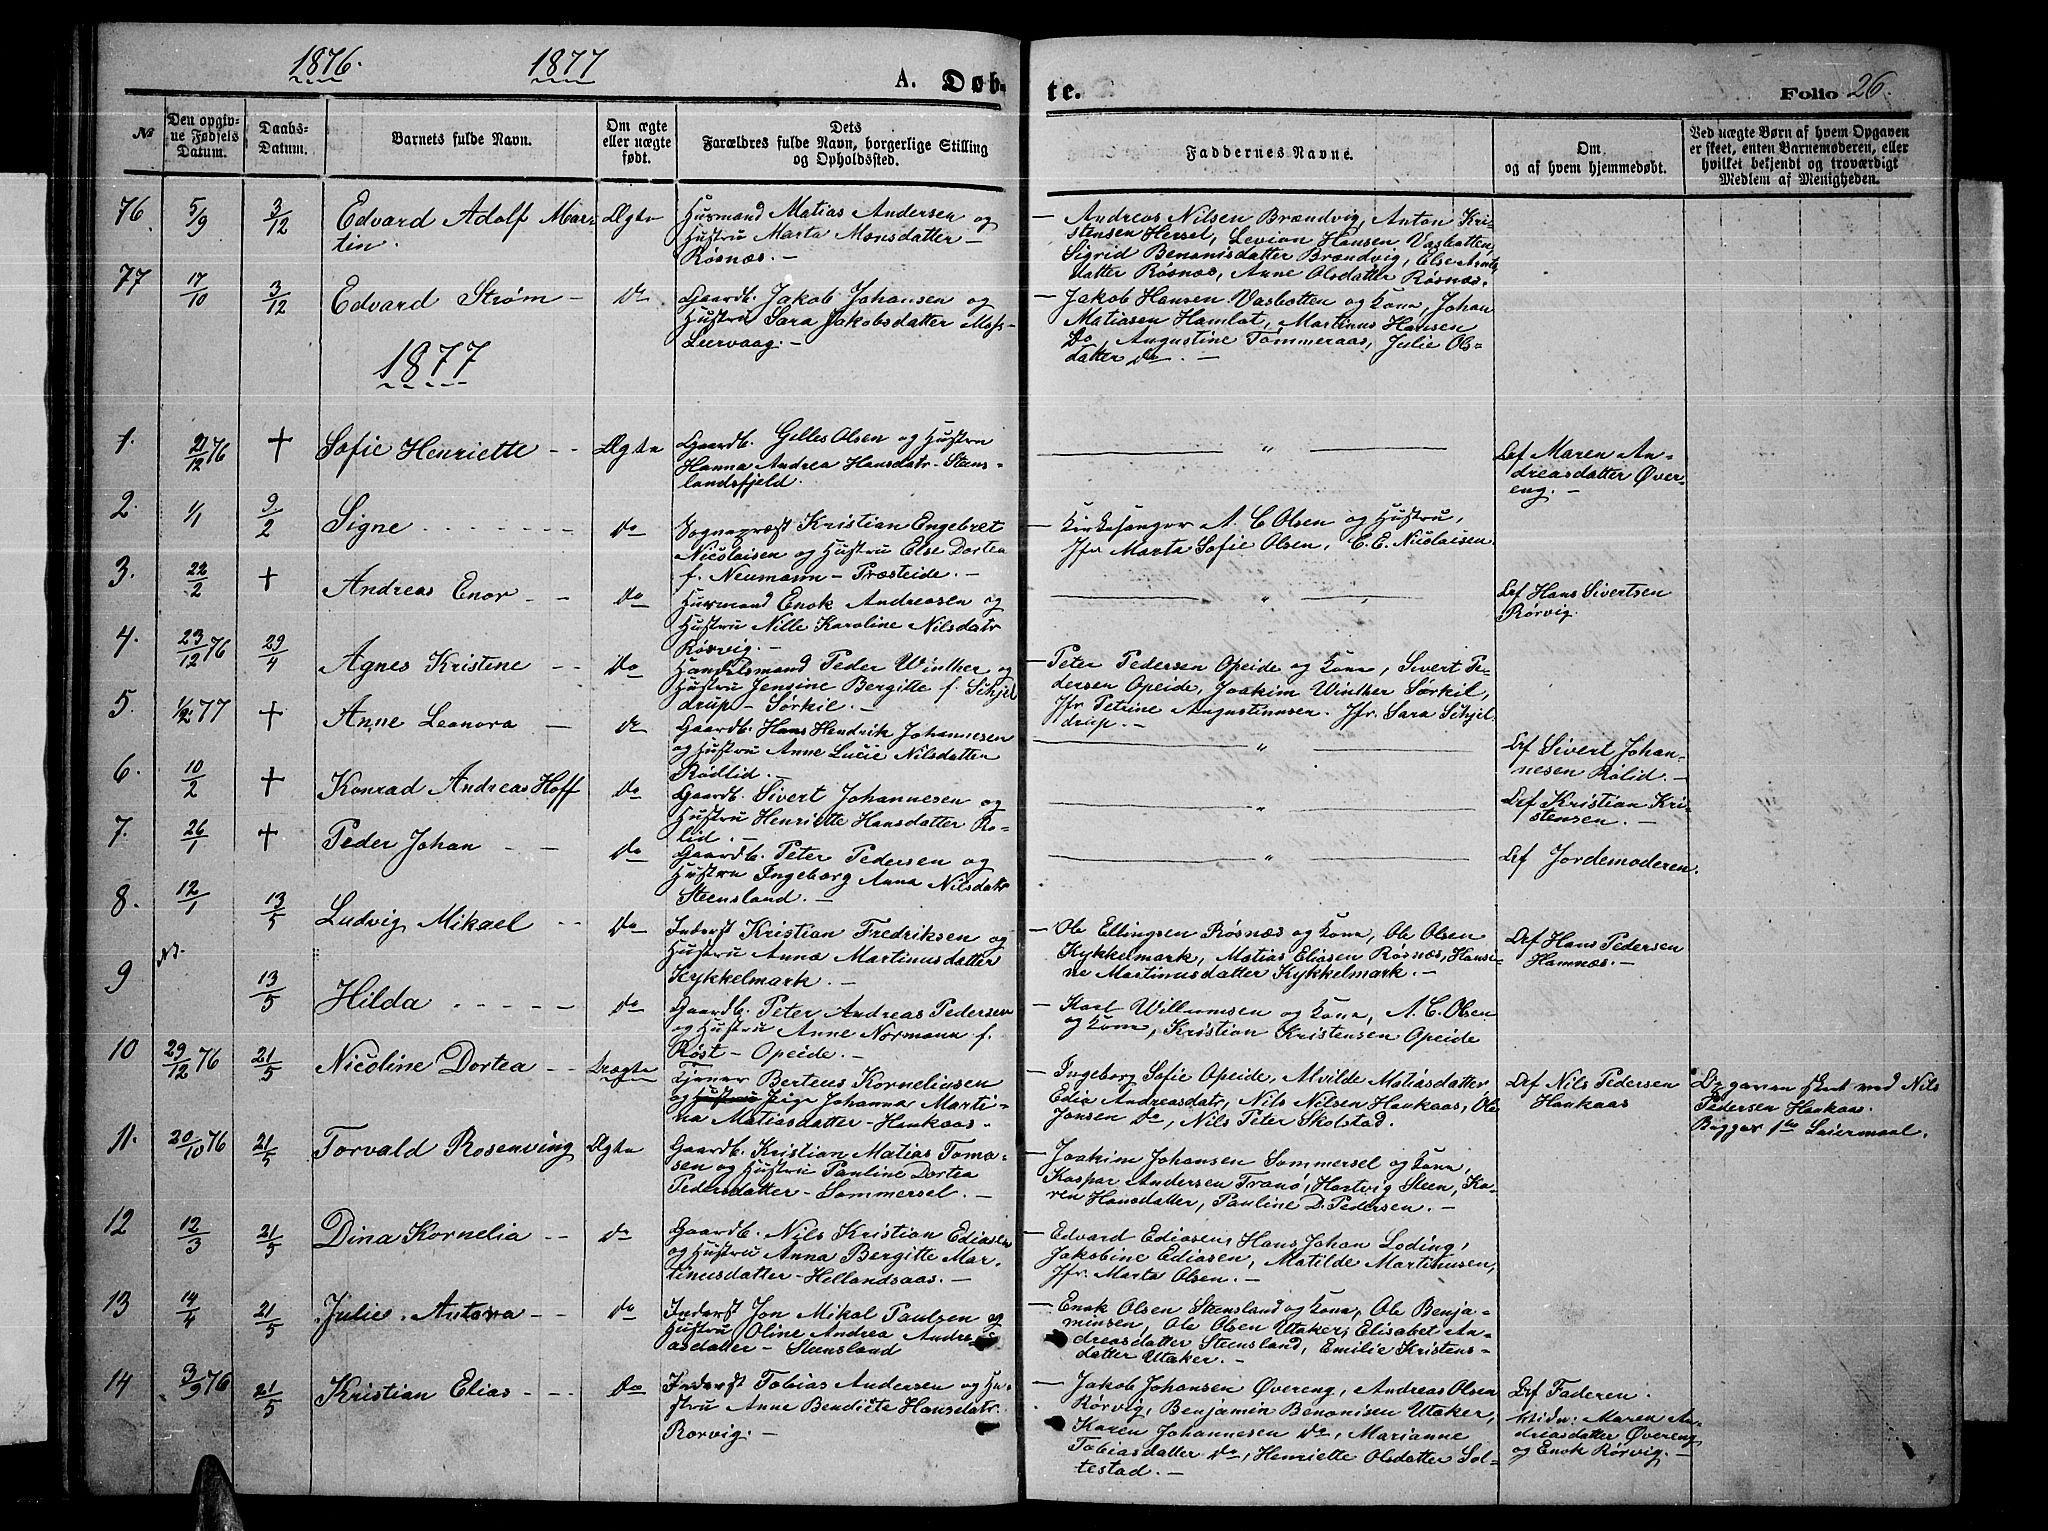 1876. 1877
A. Døbte. Folio 26.
№
Den opgivne Fødsels Datum.
Daabs-Datum.
Barnets fulde Navn.
Om ægte eller uægte født.
Dets Forældres fulde Navn, borgerlige Stilling og Opholdssted.
Faddernes Navne.
Om og af hvem hjemmedøbt.
Ved uægte Børn af hvem Opgaven er skeet, enten Barnemoderen, eller hvilket bekjendt og troværdigt Medlem af Menigheden.
76 5/9 3/12 Edvard Adolf Mar-
tin. Ægte
Husmand Matias Andersen og
Hustru Marta Monsdatter –
Røsnæs. –
– Andreas Nilsen Brændvig, Anton Kri-
stensen Hersel, Levion Hansen Vasbotten,
Sigrid Benonisdatter Brændvig, Else Arnts
datter Røsnæs, Anne Olsdatter Røsnæs.
77 17/10 3/12 Edvard Strøm – Do
Gaardb. Jakob Johansen og
Hustru Sara Jakobsdatter Mos-
Leervaag. –
– Jakob Hansen Vasbotten og Kone, Johan
Matiasen Hamlot, Martinus Hansen
Do, Augustine Tømmeraas, Julie Ols-
datter Do. –
1877
1. 21/12 76 + Sofie Henriette – – Ægte
Gaardb. Gilles Olsen og Hustru
Hanna Andrea Hansdatr. Stens-
landsfjeld.
"
Af Maren An-
dreasdatter Øver-
eng. –
2. 1/1 9/2 Signe Do
Sognepræst Kristian Engebret
Nicolaisen og Hustru Else Dortea
f. Neumann – Presteide. –
– Kirkesanger A. C. Olsen og Hustru,
Jfr Marta Sofie Olsen, C. E. Nicolaisen
3. 22/2 + Andreas Enor – – Do
Husmand Enok Andreasen og
Hustru Nille Karoline Nilsdatr
Rørvig. –
"
Af Hans Sivertsen
Rørvig.
4. 23/12 76 29/4 Agnes Kristene – – Do
Handelsmand Peder Winther og
Hustru Jensine Bergitte f. Schjel
drup – Sørkil. –
– Peter Pedersen Opeide og Kone, Sivert Pe-
dersen Opeide, Joakim Winther Sørkil,
Jfr Petrine Augustinusen. Jfr. Sara Schjel
drup. –
5. 1/2 77 + Anne Leonora – Do
Gaardb. Hans Hendrik Johannesen
og Hustru Anne Lucie Nilsdatter
Rødlid. –
"
Af Sivert Johan-
nesen Rølid. –
6. 10/2 + Konrad Andreas Hoff Do
Gaardb. Sivert Johannesen og
Hustru Henriette Hansdatter Rø-
lid. –
"
Af Kristian Kri-
stensen. –
7. 26/1 + Peder Johan – – Do
Gaardb. Peter Pedersen og
Hustru Ingeborg Anna Nilsdatr
Steensland. –
"
Af Jordemoderen.
8. 12/1 13/5 Ludvig Mikael – – Do
Inderst Kristian Fredriksen og
Hustru Anna Martinusdatter
Kykkelmark. –
– Ole Ellingsen Røsnæs og Kone, Ole Olsen
Kykkelmark, Matias Eliasen Røsnæs, Hansi-
ne Martinusdatter Kykkelmark. –
Af Hans Pedersen
Hamnæs. –
9 13/5 Hilda Do
Gaardb. Peter Andreas Pedersen
og Hustru Anne Normann f.
Røst – Opeide. –
– Karl Willumsen og Kone, A. C. Olsen
og Kone, Kristian Kristensen Opeide
10 29/12 76 21/5 Nicoline Dortea – – Uægte
Tjener Berteus Korneliusen
og Hustru Pige Johanna Marti-
na Matiasdatter – Haukaas.
– Ingeborg Sofie Opeide, Alvilde Matiasdatter
Edia Andreasdatr, Nils Nilsen Haukaas, Ole
Jonsen Do, Nils Peter Skolstad.
Af Nils Pedersen
Haukaas
Opgaven skeet ved Nils
Pedersen Haukaas.
Begges 1ste Leiermaal.
11. 20/10 76 21/5 Torvald Rosenving Ægte
Gaardb. Kristian Matias Toma-
sen og Hustru Pauline Dortea
Pedersdatter – Sommersel. –
– Joakim Johansen Sommersel og Kone,
Kaspar Andersen Tranø, Hartvig Steen, Ka-
ren Hansdatter, Pauline D. Pedersen. –
12 12/3 21/5 Dina Kornelia – – Do
Gaardb. Nils Kristian Ediasen
og Hustru Anna Bergitte Mar-
tinusdatter – Hellandsaas. –
– Edvard Ediasen, Hans Johan Loding,
Jakobine Ediasen, Matilde Martinusen,
Jfr. Marta Olsen. –
13 14/4 21/5 Julie Antora – – Do
Inderst Jon Mikal Paulsen og
Hustru Oline Andrea Andre-
asdatter – Steensland
– Enok Olsen Steensland og Kone, Ole Benja-
minsen, Ole Olsen Utaker, Elisabet An-
dreasdatter Steensland, Emilie Kristens-
datter Utaker. –
14 3/9 76 21/5 Kristian Elias – – Do
Inderst Tobias Andersen og Hu-
stru Anne Bendicte Hansdatr.
Rorvig. –
– Jakob Johansen Øvereng, Andreas Olsen
Rørvig, Benjamin Benonisen Utaker,
Karen Johannesen Do, Marianne
Tobiasdatter Do, Henriette Olsdatter Sol-
testad. –
Af Faderen.
Vidn: Maren An-
dreasdatter Øvereng
og Enok Rørvig. –